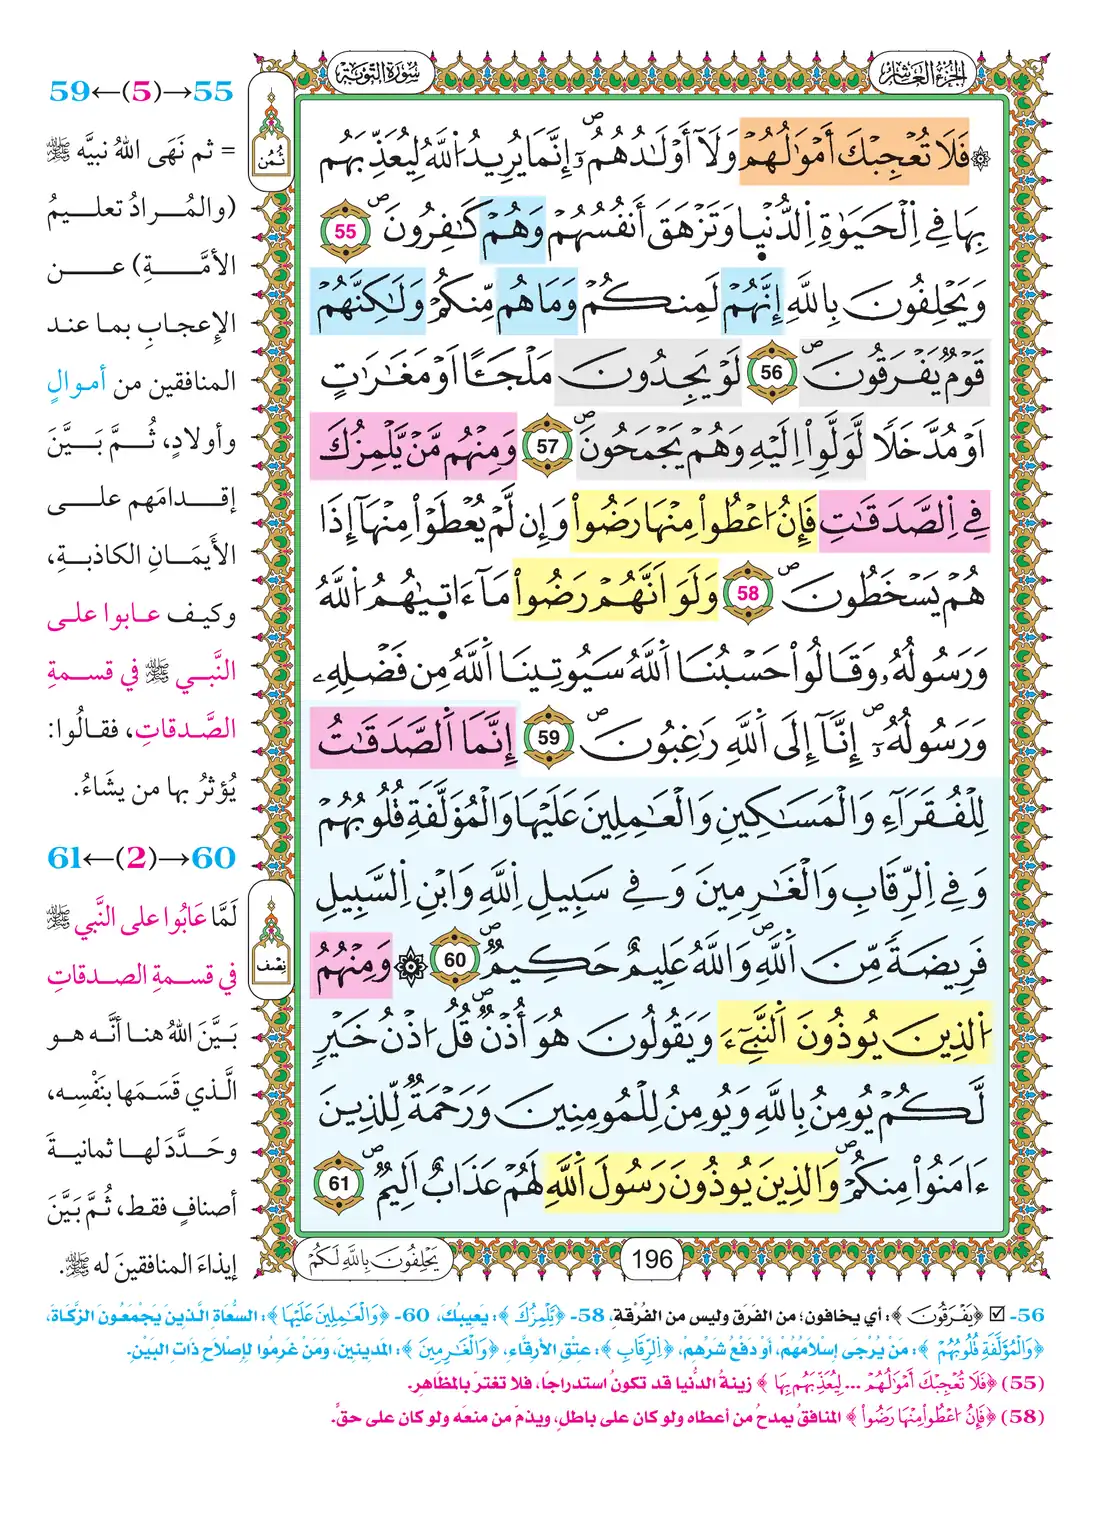 سُورَةُ التَّوْبَةِ
الجُزْءُ العَاشِرُ
فَلَا تُعْجِبْكَ أَمْوَٰلُهُمْ وَلَآ أَوْلَٰدُهُمُۥٓ إِنَّمَا يُرِيدُ اُ۬للَّهُ لِيُعَذِّبَهُم
بِهَا فِے اِ۬لْحَيَوٰةِ اِ۬لدُّنْي۪ا وَتَزْهَقَ أَنفُسُهُمْ وَهُمْ كَٰفِرُونَۖ 55
وَيَحْلِفُونَ بِاللَّهِ إِنَّهُمْ لَمِنكُمْ وَمَا هُم مِّنكُمْ وَلَٰكِنَّهُمْ
قَوْمٞ يَفْرَقُونَۖ 56 لَوْ يَجِدُونَ مَلْجَـًٔا اَوْ مَغَٰرَٰتٍ
اَوْ مُدَّخَلٗا لَّوَلَّوِا۟ اِلَيْهِ وَهُمْ يَجْمَحُونَۖ 57 وَمِنْهُم مَّنْ يَّلْمِزُكَ
فِے اِ۬لصَّدَقَٰتِ فَإِنُ ا۟عْطُوا۟ مِنْهَا رَضُوا۟ وَإِن لَّمْ يُعْطَوْا۟ مِنْهَآ إِذَا
هُمْ يَسْخَطُونَۖ 58 وَلَوَ اَنَّهُمْ رَضُوا۟ مَآ ءَات۪يٰهُمُ اُ۬للَّهُ
وَرَسُولُهُۥ وَقَالُوا۟ حَسْبُنَا اَ۬للَّهُ سَيُوتِينَا اَ۬للَّهُ مِن فَضْلِهِۦ
وَرَسُولُهُۥٓۖ إِنَّآ إِلَى اَ۬للَّهِ رَٰغِبُونَۖ 59 إِنَّمَا اَ۬لصَّدَقَٰتُ
لِلْفُقَرَآءِ وَالْمَسَٰكِينِ وَالْعَٰمِلِينَ عَلَيْهَا وَالْمُؤَلَّفَةِ قُلُوبُهُمْ
وَفِے اِ۬لرِّقَابِ وَالْغَٰرِمِينَ وَفِے سَبِيلِ اِ۬للَّهِ وَابْنِ اِ۬لسَّبِيلِ
فَرِيضَةٗ مِّنَ اَ۬للَّهِۖ وَاللَّهُ عَلِيمٌ حَكِيمٞۖ 60 وَمِنْهُمُ
اُ۬لذِينَ يُوذُونَ اَ۬لنَّبِےٓءَ وَيَقُولُونَ هُوَ أُذْنٞۖ قُلُ ا۟ذْنُ خَيْرٖ
لَّكُمْ يُومِنُ بِاللَّهِ وَيُومِنُ لِلْمُومِنِينَ وَرَحْمَةٞ لِّلذِينَ
ءَامَنُوا۟ مِنكُمْۖ وَالذِينَ يُوذُونَ رَسُولَ اَ۬للَّهِ لَهُمْ عَذَابٌ اَلِيمٞۖ 61
196
يَحْلِفُونَ بِاللَّهِ لَكُمْ
ثُمُن
نِصْف
55→(5)←59
= ثم نَهَى اللهُ نبيَّه ﷺ
(والمُرادُ تعليمُ
الأمَّةِ) عن
الإعجابِ بما عند
المنافقين من أموالٍ
وأولادٍ، ثُمَّ بَيَّنَ
إقدامَهم على
الأَيمَانِ الكاذبةِ،
وكيف عابوا على
النَّبي ﷺ في قسمةِ
الصَّدقاتِ، فقالُوا:
يُؤثرُ بها من يشَاءُ.
60→(2)←61
لَمَّا عَابُوا على النَّبي ﷺ
في قسمةِ الصدقاتِ
بَيَّنَ اللهُ هنا أنَّه هو
الَّذي قَسَمَها بنَفْسِه،
وحَدَّدَ لها ثمانيةَ
أصنافٍ فقط، ثُمَّ بَيَّنَ
إيذاءَ المنافقينَ له ﷺ.
56- ☑ ﴿يَفْرَقُونَ﴾: أي يخافون؛ من الفَرَق وليس من الفُرْقة، 58- ﴿يَلْمِزُكَ﴾: يَعيبُكَ، 60- ﴿وَالْعَٰمِلِينَ عَلَيْهَا﴾: السُّعَاةِ الَّذينَ يَجْمَعُونَ الزَّكَاةَ،
﴿وَالْمُؤَلَّفَةِ قُلُوبُهُمْ﴾: مَنْ يُرْجَى إسْلَامُهُمْ، أوْ دَفْعُ شَرِّهِمْ، ﴿اِ۬لرِّقَابِ﴾: عتْقِ الأَرِقَّاءِ، ﴿وَالْغَٰرِمِينَ﴾: المَدينِينَ، وَمَنْ غَرِمُوا لإصْلَاحِ ذَاتِ البَيْنِ.
(55) ﴿فَلَا تُعْجِبْكَ أَمْوَٰلُهُمْ ... لِيُعَذِّبَهُم بِهَا﴾ زينةُ الدُّنيا قد تكونُ استدراجًا، فلا تغترّ بالمظاهِر.
(58) ﴿فَإِنُ ا۟عْطُوا۟ مِنْهَا رَضُوا۟﴾ المنافقُ يمدحُ من أعطاه ولو كان على باطلٍ، ويذمّ من منعَه ولو كان على حقٍّ.